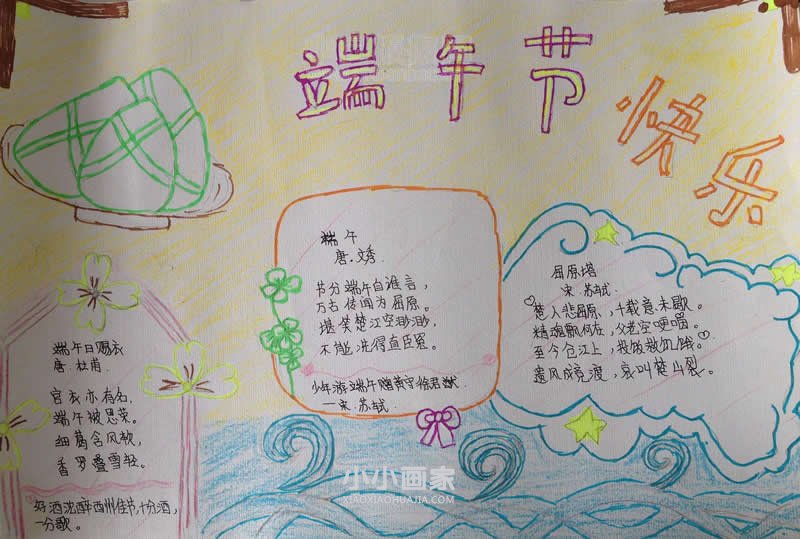 端午节
快乐
端午
唐·文秀
节分端午自谁言，
万古传闻为屈原。
堪笑楚江空渺渺，
不能洗得直臣冤。
少年游端午赠黄守徐君猷
一宋.苏轼.
屈原塔
宋.苏轼.
楚人悲屈原，千载意未歇。
精魂飘何在，父老空哽咽。
至今仓江上，投饭救饥饿。
遗风成竞渡，哀叫楚山裂。
端午日赐衣
唐.杜甫.
宫衣亦有名，
端午被恩荣。
细葛含风软，
香罗叠雪轻。
好酒沈醉西州佳节,十分酒，
一分歌。
小小画家
XIAOXIAOHUAJIA.COM